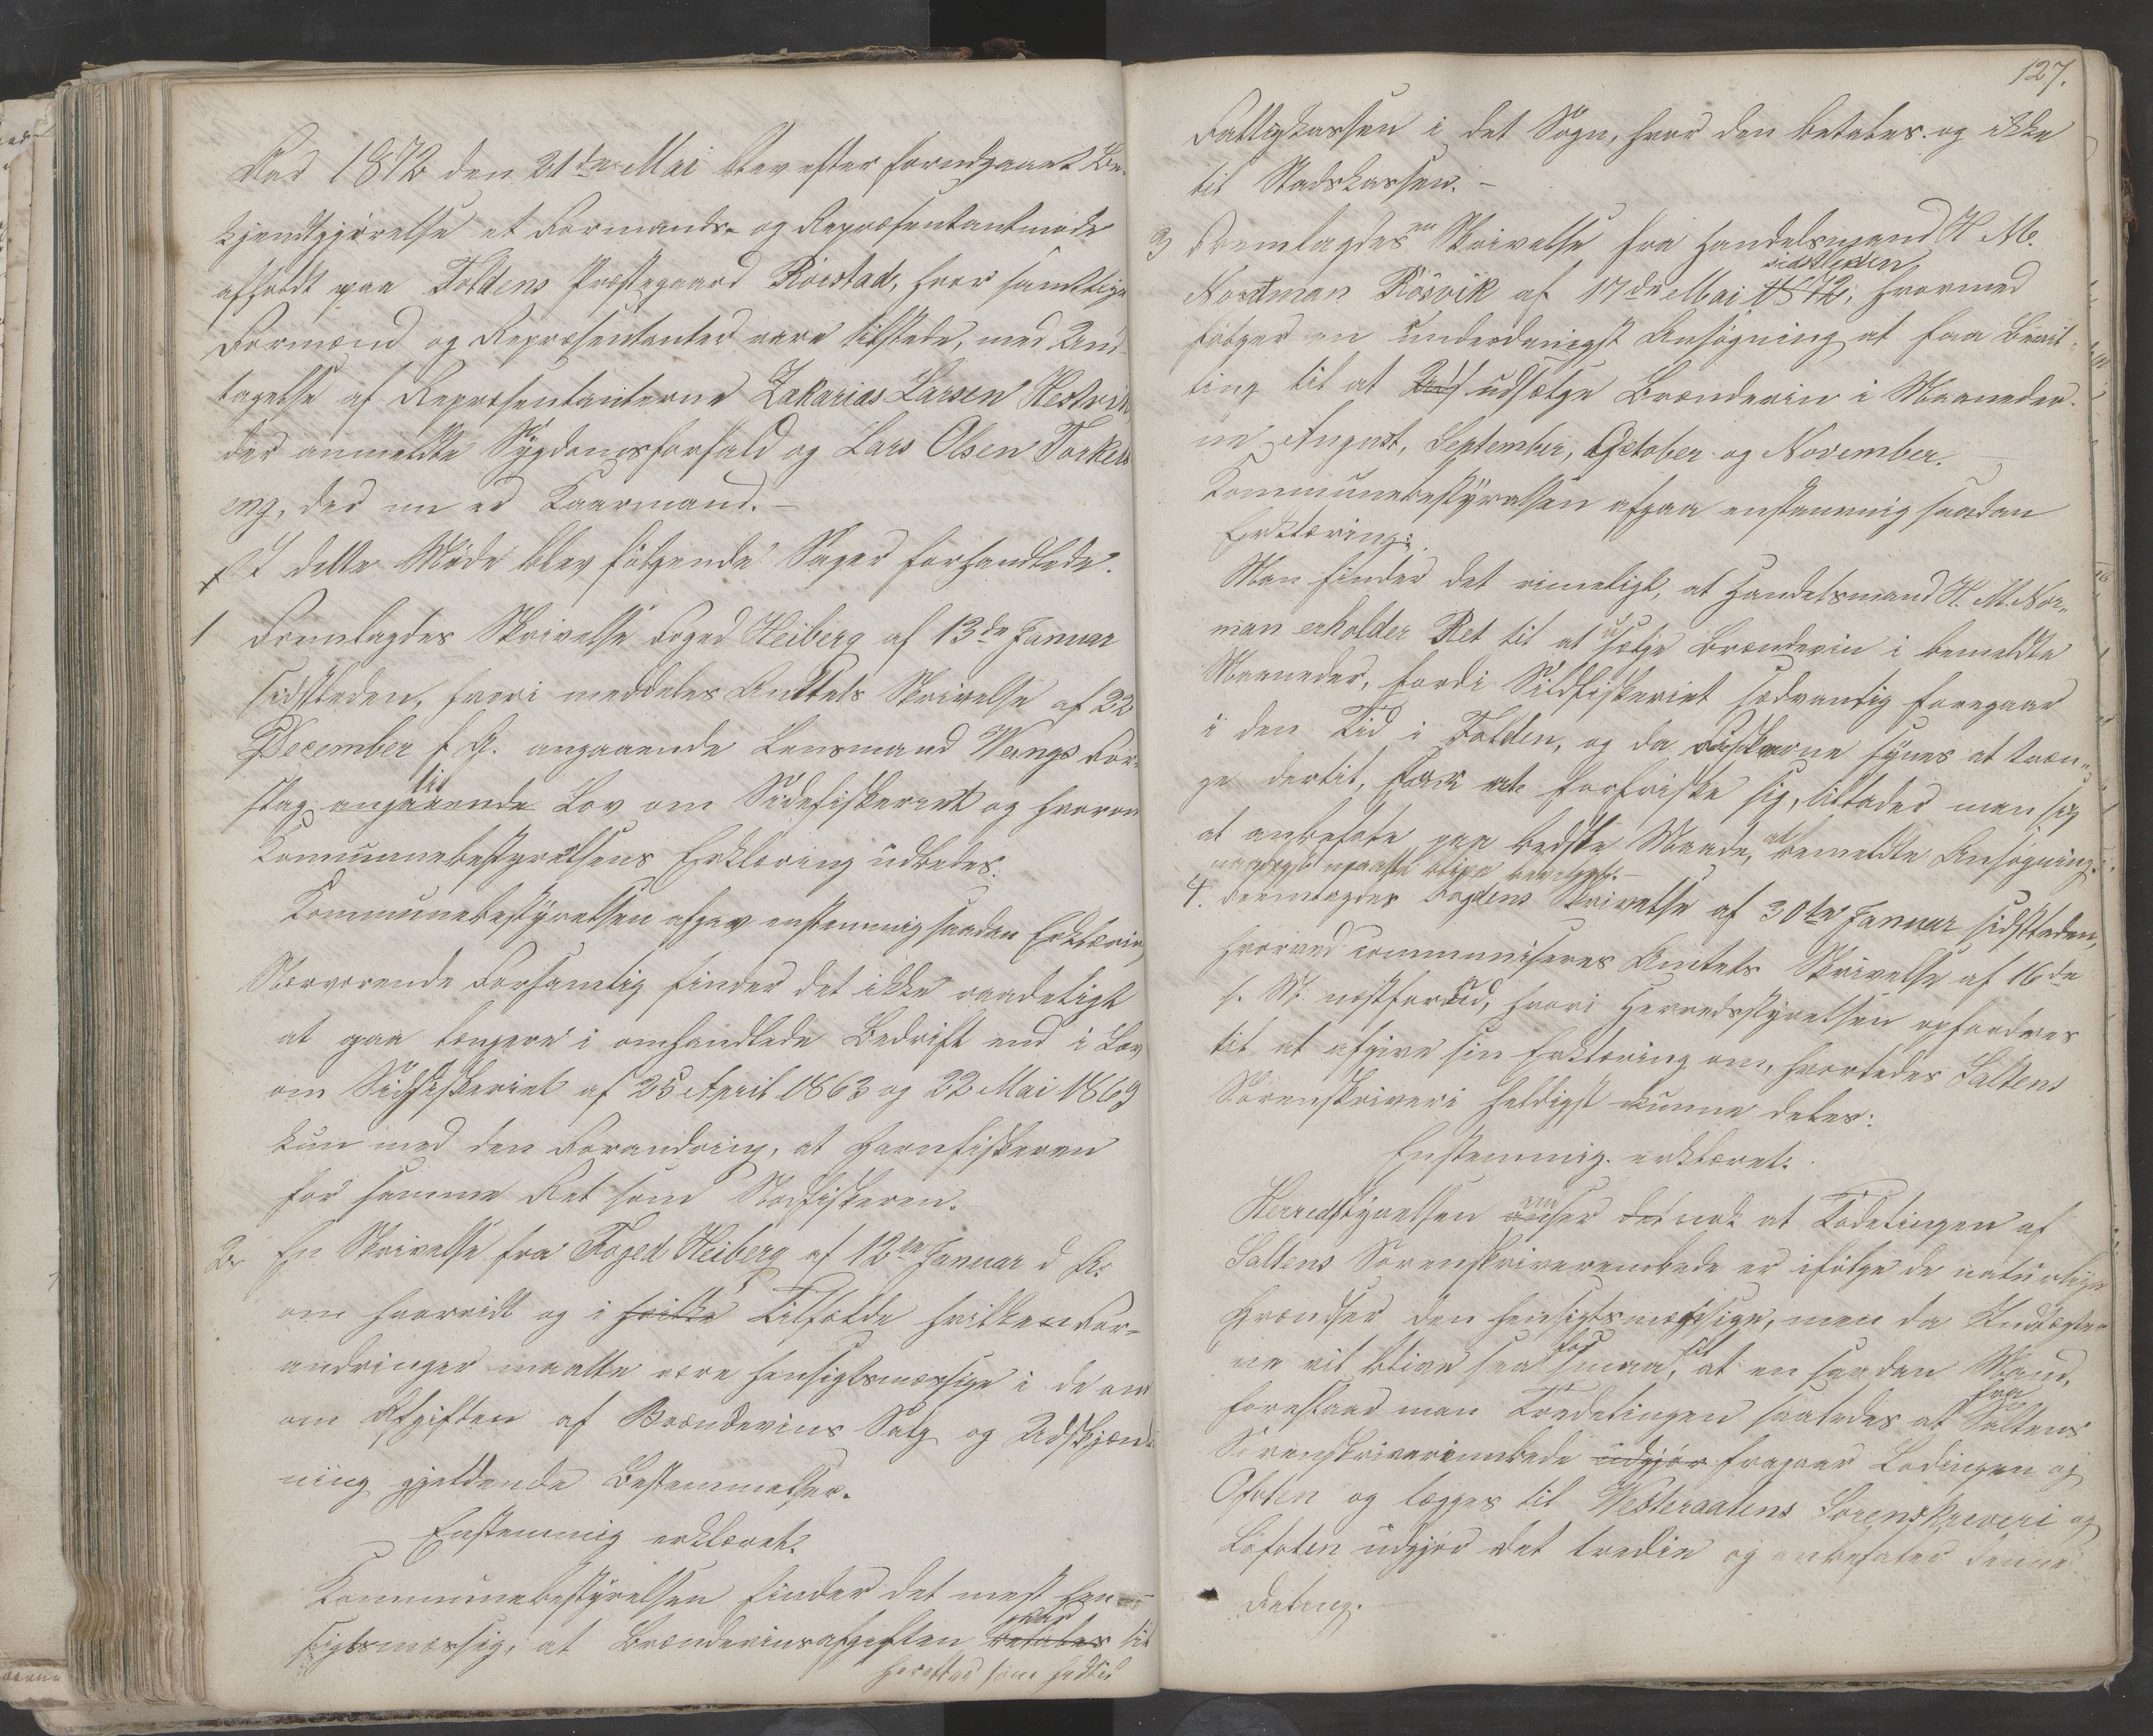 Aar 1872 den 21de Mai blev efter forudgaaet Be-
kjendtgjørelse et Formands- og Repræsentantmøde
afholdt paa Foldens Præstegaard Röestad, hvor samtlige
Formænd og Repræsentanter vare tilstede, med Und-
tagelse af Repræsentanterne Zakarias Larsen Hestvik
der anmeldte Sÿgdomsforfald og Lars Olsen Torkels
eng, der nu er Kaarmand. -
I dette Møde blev følgende Sager forhandlede.
1 Fremlagdes Skrivelse Foged Heiberg af 13de Januar
sidstleden, hvori meddeles Amtets Skrivelse af 22
December f. A. angaaende Lensmand Wangs For-
til
slag angaaende Lov om Sildefiskeriet og hvorom
Kommunebestyrelsens Erklæring udbedes.
Kommunebestÿrelsen afgav enstemmig saadan Erklæring
Nærværende Forsamling finder det ikke raadeligt
at gaa længere i omhandlede Bedrift end i Lov
om Sildfiskeriet af 25 April 1863 og 22 Mai 1869
kun med den Forandring, at Garnfiskeren
før samme Ret som Nodfiskeren.
2. En Skrivelse fra Foged Heiberg af 12te Januar d. A.
om hvorvidt og i hvilke Tilfælde hvilken For-
andringer maatte være hensigtsmæssige i de om
om Afgiften af Brændevins Salg og Udskjænk
ning gjeldende Bestemmelser.
Enstemmig erklæret.
Kommunebestÿrelsen finder det mest hen-
sigtsmæssig, at Brændevinsafgiften betales til
herefter som hidtil
127.
Fattigkassen i det Sogn, hvor den betales og ikke
til Stadskassen. -
3 Fremlagdes en Skrivelse fra Handelsmand H. M.
sidstleden
Nordtman Rösvik af 17de Mai 1872, hvormed
følger en underdanigst Ansøgning at faa Bevil-
ling til at Uds udsælge Brændevin i Maaneder-
ne August, September, October og November.
Kommunebestÿrelsen afgaa enstemmig saadan
Erklæring:
Man finder det rimeligt, at Handelsmand H. M. Nor-
man erholder Ret til at sælge Brændevin i bemeldte
Maaneder, fordi Sildfiskeriet sædvanlig foregaar
i den Tid i Folden, og da Fiskerne sÿnes at træn-
ge dertil, for at forfriske sig, tillader man sig
at anbefale paa bedste Maade, at bemeldte Ansøgning
naadigst maatte blive bevilget. -
4. Fremlagdes Fogdens Skrivelse af 30te Januar sidstleden,
hvorved communiseres Amtets Skrivelse af 16de
s. M. næstforud, hvori Herredsstÿrelsen opfordres
til at afgive sin Erklæring om, hvorledes Saltens
Sorenskriveri heldigst kunne deles:
Enstemmig erklæret:
Herredsstÿrelsen anser det nok at Todelingen af
Saltens Sorenskriverembede er ifølge de naturlige
Grændser den hensigtsmæssige, men da Indtægter
ne vil blive saa smaa, for til at en saadan Mand,
fra
foreslaar man Tredelingen saaledes at Saltens
Sorenskriverimbede udgjør fragaar Lødingen og
Ofoten og lægges til Westeraalens Sorenskriveri og
Lofoten udgjør det tredie og anbefaler denne
Deling. -